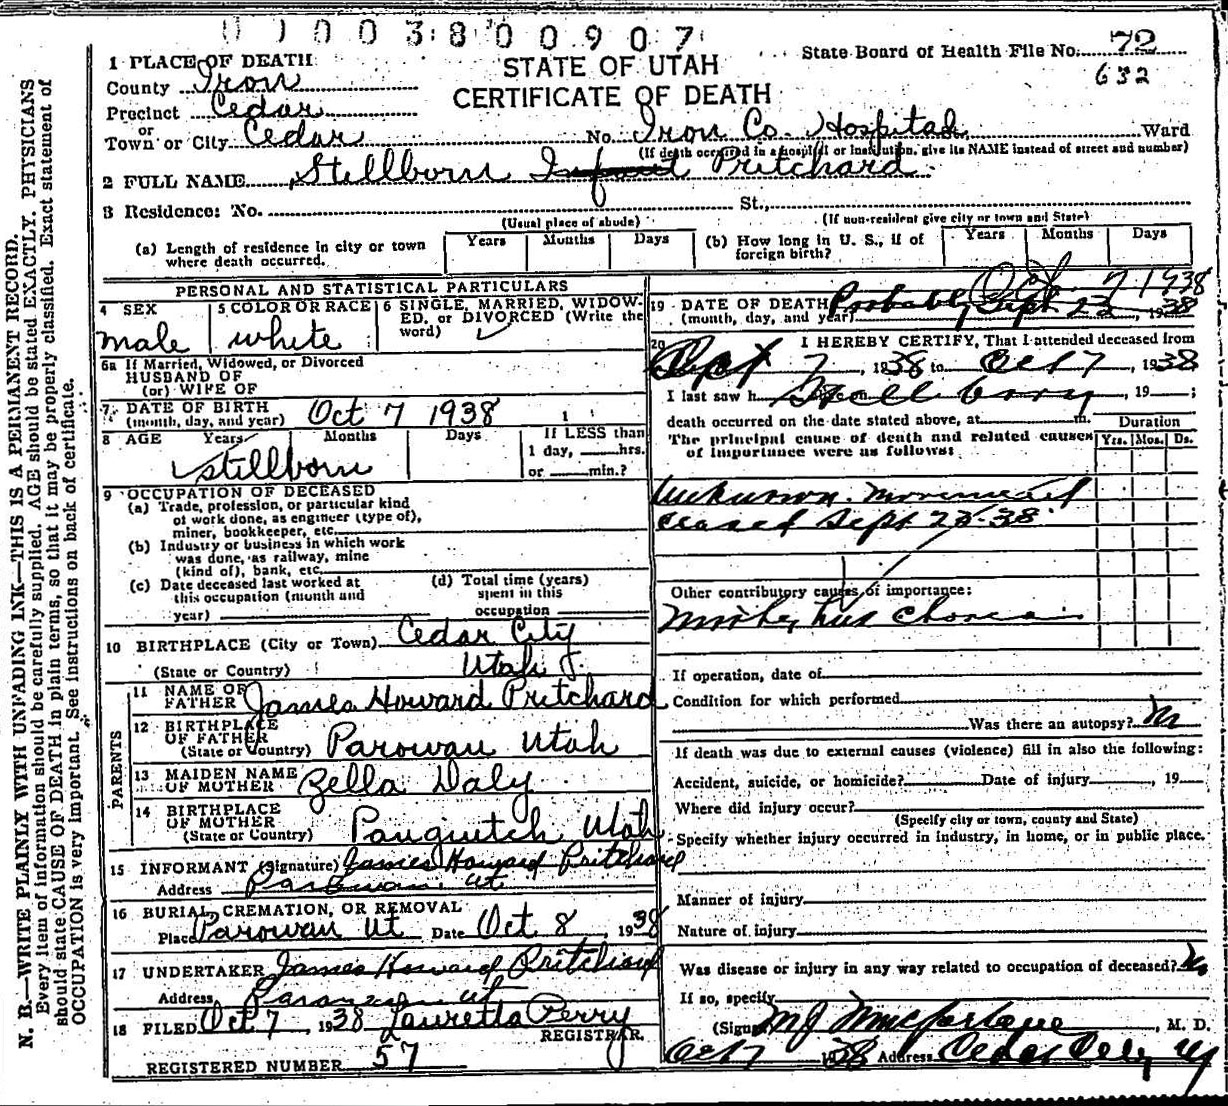 0 1 0 0 3 8 0 0 9 0 7
State Board of Health File No. 72
632
STATE OF UTAH
CERTIFICATE OF DEATH
1 PLACE OF DEATH:
County Iron
Precinct Cedar
or
Town or City Cedar No. Iron Co. Hospital Ward
(If death occurred in a hospital or institution, give its NAME instead of street and number)
2 FULL NAME Stillborn Infant Pritchard
3 Residence: No. St.,
(Usual place of abode) (If non-resident give city or town and State)
(a) Length of residence in city or town where death occurred. Years Months Days (b) How long in U. S., if of foreign birth? Years Months Days
PERSONAL AND STATISTICAL PARTICULARS
4 SEX male
5 COLOR OR RACE white
6 SINGLE, MARRIED, WIDOWED, OR DIVORCED (Write the word)
6a If Married, Widowed, or Divorced
HUSBAND OF
(or) WIFE OF
7 DATE OF BIRTH
(month, day, and year) Oct 7 1938
8 AGE Years Months Days If LESS than
1 day, hrs.
or min.?
stillborn
9 OCCUPATION OF DECEASED
(a) Trade, profession, or particular kind
of work done, as engineer (type of),
miner, bookkeeper, etc.
(b) Industry or business in which work
was done, as railway, mine
(kind of), bank, etc.
(c) Date deceased last worked at
this occupation (month and
year)
(d) Total time (years)
spent in this
occupation
10 BIRTHPLACE (City or Town) Cedar City
(State or Country) Utah
PARENTS
11 NAME OF
FATHER James Howard Pritchard
12 BIRTHPLACE
OF FATHER
(State or Country) Parowan Utah
13 MAIDEN NAME
OF MOTHER Zella Daly
14 BIRTHPLACE
OF MOTHER
(State or Country) Panguitch Utah
15 INFORMANT (Signature) James Howard Pritchard
Address Parowan, Ut
16 BURIAL, CREMATION, OR REMOVAL
Place Parowan Ut Date Oct 8, 1938
17 UNDERTAKER James Howard Pritchard
Address Parowan Ut
18 FILED Oct 7, 1938 Lauretta Perry
REGISTRAR.
REGISTERED NUMBER 57
Oct. 7 1938
19 DATE OF DEATH
(month, day, and year) Probably Sept 23, 1938
20 I HEREBY CERTIFY, That I attended deceased from
Oct 7, 1938 to Oct 7, 1938
I last saw h Still born, 19 ;
death occurred on the date stated above, at m.
The principal cause of death and related causes
of importance were as follows:
Duration
Yrs. Mos. Ds.
Unknown. Movement
ceased Sept 23-38
Other contributory causes of importance:
Mother has chorea
If operation, date of
Condition for which performed
Was there an autopsy? No
If death was due to external causes (violence) fill in also the following:
Accident, suicide, or homicide? Date of injury , 19
Where did injury occur?
(Specify city or town, county and State)
Specify whether injury occurred in industry, in home, or in public place.
Manner of injury
Nature of injury
Was disease or injury in any way related to occupation of deceased? No
If so, specify
(Signed) MJ Macfarlane, M. D.
Oct 7 1938 Address Cedar City, Ut
N. B.—WRITE PLAINLY WITH UNFADING INK—THIS IS A PERMANENT RECORD.
Every item of information should be carefully supplied. AGE should be stated EXACTLY. PHYSICIANS
should state CAUSE OF DEATH in plain terms, so that it may be properly classified. Exact statement of
OCCUPATION is very important. See instructions on back of certificate.